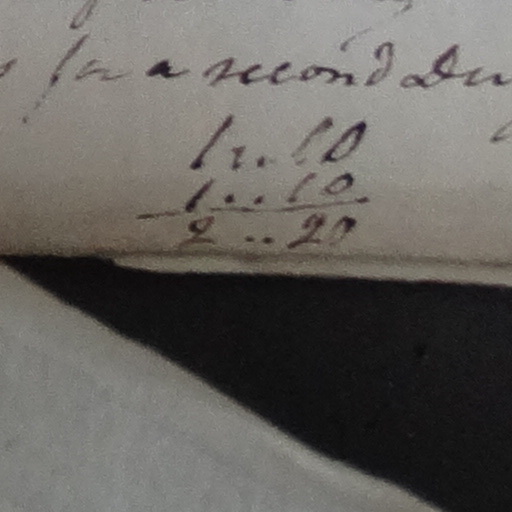 for a second
1 .. 10
1 .. 10
2 .. 20